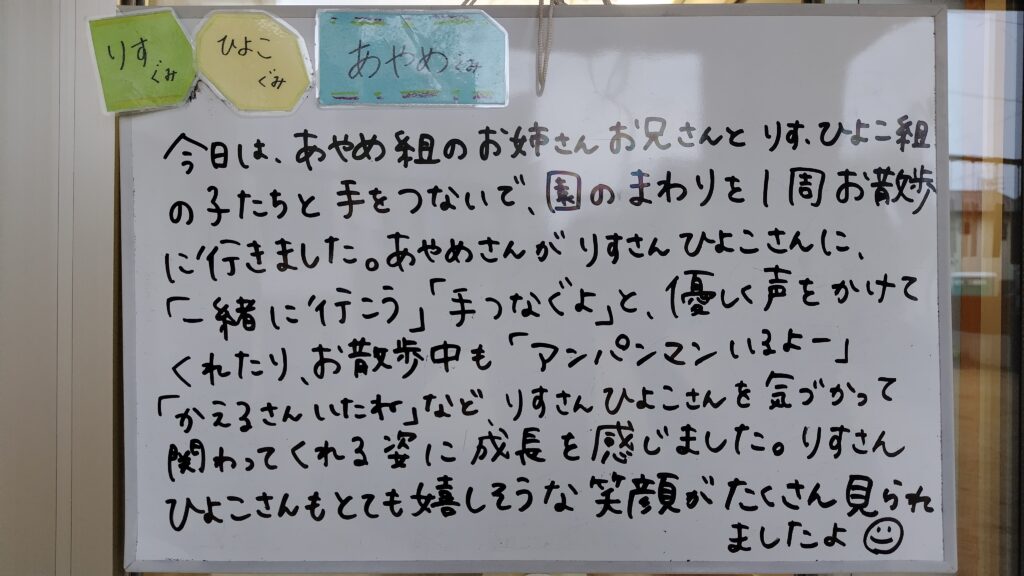 りすぐみ
ひよこぐみ
あやめぐみ
今日は、あやめ組のお姉さんお兄さんと りす、ひよこ組
の子たちと手をつないで、園のまわりを1周お散歩
に行きました。あやめさんが りすさんひよこさんに、
「一緒に行こう」「手つなぐよ」と、優しく声をかけて
くれたり、お散歩中も「アンパンマンいるよー」
「かえるさんいたね」など、りすさんひよこさんを気づかって
関わってくれる姿に成長を感じました。りすさん
ひよこさんもとても嬉しそうな笑顔がたくさん見られ
ましたよ☺